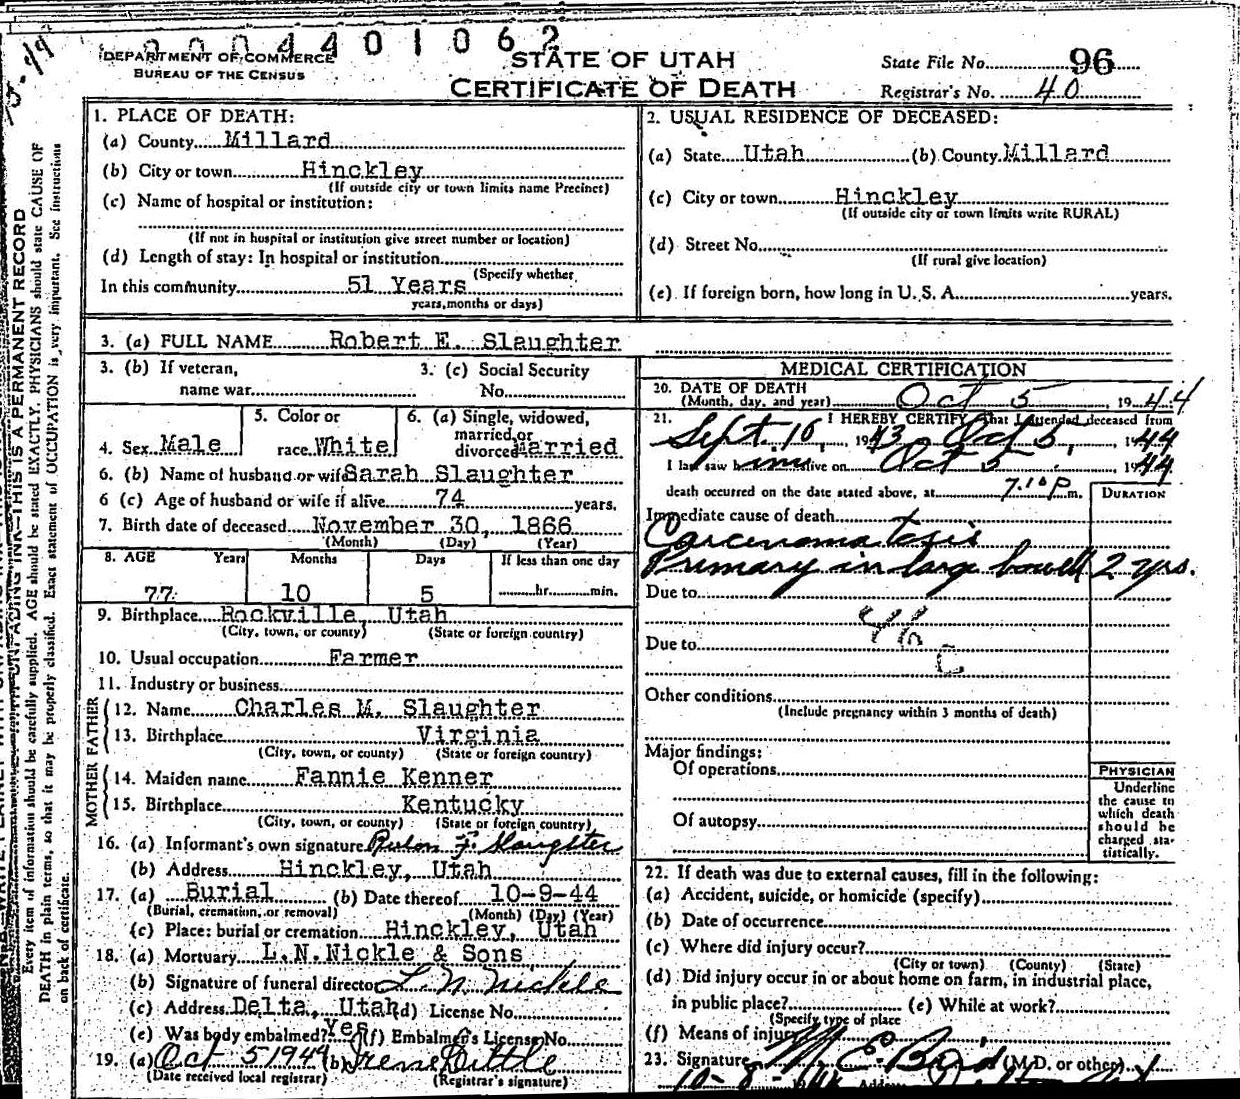 0004401062
DEPARTMENT OF COMMERCE
BUREAU OF THE CENSUS
STATE OF UTAH
CERTIFICATE OF DEATH
State File No. 96
Registrar's No. 40
1. PLACE OF DEATH:
(a) County Millard
(b) City or town Hinckley
(If outside city or town limits name Precinct)
(c) Name of hospital or institution:
(If not in hospital or institution give street number or location)
(d) Length of stay: In hospital or institution
(Specify whether
In this community 51 Years
years, months or days)
2. USUAL RESIDENCE OF DECEASED:
(a) State Utah (b) County Millard
(c) City or town Hinckley
(If outside city or town limits write RURAL)
(d) Street No.
(If rural give location)
(e) If foreign born, how long in U. S. A. years.
3. (a) FULL NAME Robert E. Slaughter
3. (b) If veteran,
name war
3. (c) Social Security
No.
4. Sex Male
5. Color or
race White
6. (a) Single, widowed,
married, or
divorced Married
6. (b) Name of husband or wife Sarah Slaughter
6 (c) Age of husband or wife if alive 74 years.
7. Birth date of deceased November 30, 1866
(Month) (Day) (Year)
8. AGE Years Months Days If less than one day
77 10 5 hr. min.
9. Birthplace Rockville, Utah
(City, town, or county) (State or foreign country)
10. Usual occupation Farmer
11. Industry or business
FATHER
12. Name Charles M. Slaughter
13. Birthplace Virginia
(City, town, or county) (State or foreign country)
MOTHER
14. Maiden name Fannie Kenner
15. Birthplace Kentucky
(City, town, or county) (State or foreign country)
16. (a) Informant's own signature F. Slaughter
(b) Address Hinckley, Utah
17. (a) Burial (b) Date thereof 10-9-44
(Burial, cremation, or removal) (Month) (Day) (Year)
(c) Place: burial or cremation Hinckley, Utah
18. (a) Mortuary L.N.Nickle & Sons
(b) Signature of funeral director L. N. Nickle
(c) Address Delta, Utah (d) License No.
(e) Was body embalmed? Yes (f) Embalmer's License No.
19. (a) Oct 5 1944 (b) Irene
(Date received local registrar) (Registrar's signature)
MEDICAL CERTIFICATION
20. DATE OF DEATH
(Month, day, and year) Oct 5 , 1944
21. I HEREBY CERTIFY That I attended deceased from
Sept. 16, 1943 Oct 5, 1944
I last saw him alive on Oct 5 , 1944
death occurred on the date stated above, at 7.10 P m.
DURATION
Immediate cause of death
Carcenomatosis
Primary in large bowell 2 yrs.
Due to
Due to
Other conditions
(Include pregnancy within 3 months of death)
Major findings:
Of operations
Of autopsy
PHYSICIAN
Underline
the cause to
which death
should be
charged sta-
tistically.
22. If death was due to external causes, fill in the following:
(a) Accident, suicide, or homicide (specify)
(b) Date of occurrence
(c) Where did injury occur?
(City or town) (County) (State)
(d) Did injury occur in or about home on farm, in industrial place,
in public place? (e) While at work?
(Specify type of place
(f) Means of injury
23. Signature M E Bird (M.D. or other)
10-8-
THIS IS A PERMANENT RECORD
Every item of information should be carefully supplied. AGE should be stated EXACTLY. PHYSICIANS should state CAUSE OF
DEATH in plain terms, so that it may be properly classified. Exact statement of OCCUPATION is very important. See instructions
on back of certificate.